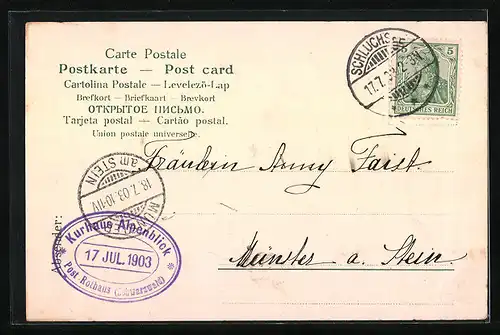 Carte Postale
Postkarte — Post card
Cartolina Postale — Levelező-Lap
Brefkort — Briefkaart — Brevkort
ОТКРЫТОЕ ПИСЬМО.
Tarjeta postal — Cartão postal.
Union postale universelle.
SCHLUCHSEE
17.7.03
5
DEUTSCHES REICH
Fräulein Anny Faist.
am STEIN
18.7.03.10-11V
Absender:
Kurhaus Alpenblick
17 JUL. 1903
Post Rothaus (Schwarzwald)
Münster a. Stein.